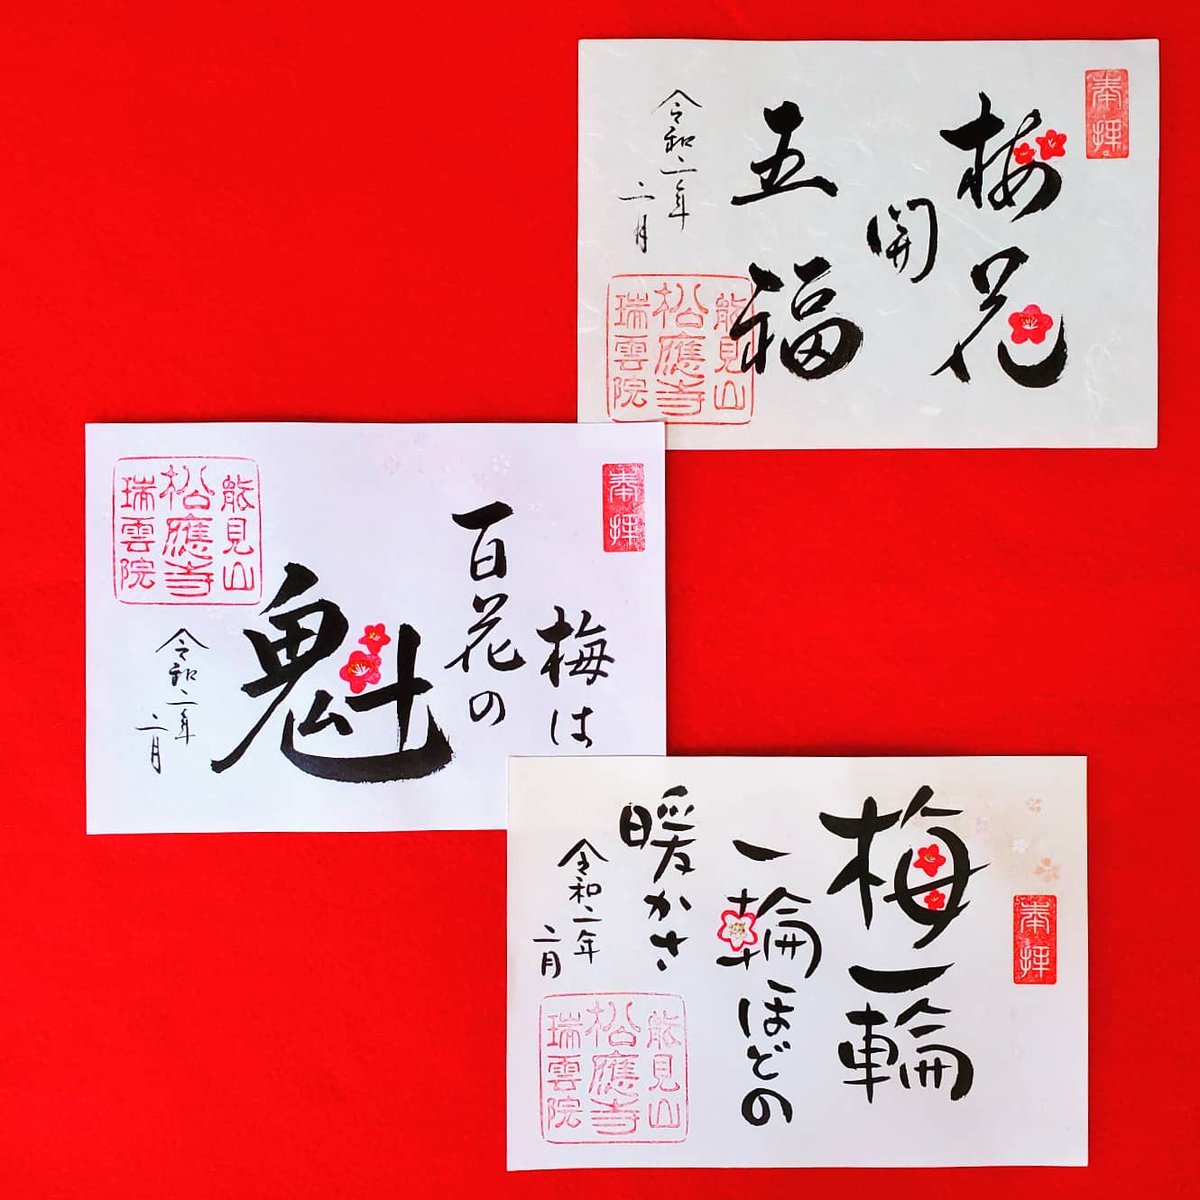 奉拝
梅花
開
五福
令和二年
二月
能見山
松應寺
瑞雲院
奉拝
梅は
百花の
魁
令和二年
二月
能見山
松應寺
瑞雲院
奉拝
梅一輪
一輪ほどの
暖かさ
令和二年
二月
能見山
松應寺
瑞雲院